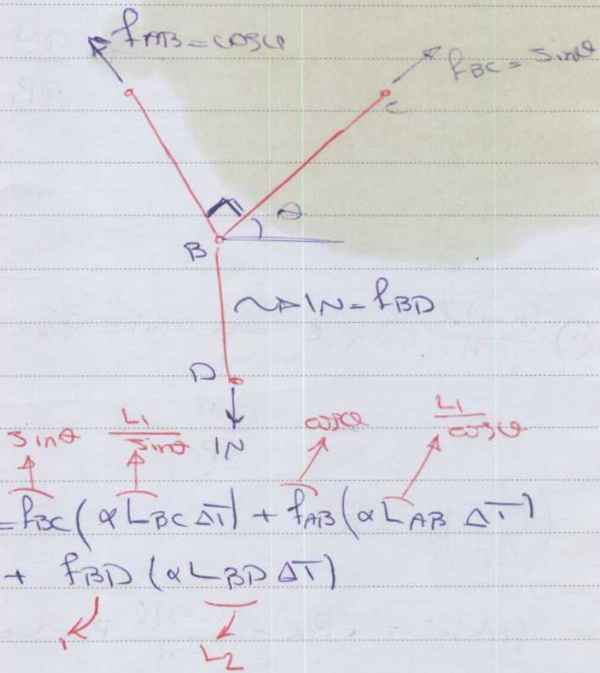 f_AB = cosθ
f_BC = sinθ
C
θ
B
1N = f_BD
D
1N
sinθ L₁/sinθ cosθ L₁/cosθ
= f_BC (α L_BC ΔT) + f_AB (α L_AB ΔT)
+ f_BD (α L_BD ΔT)
1 L₂